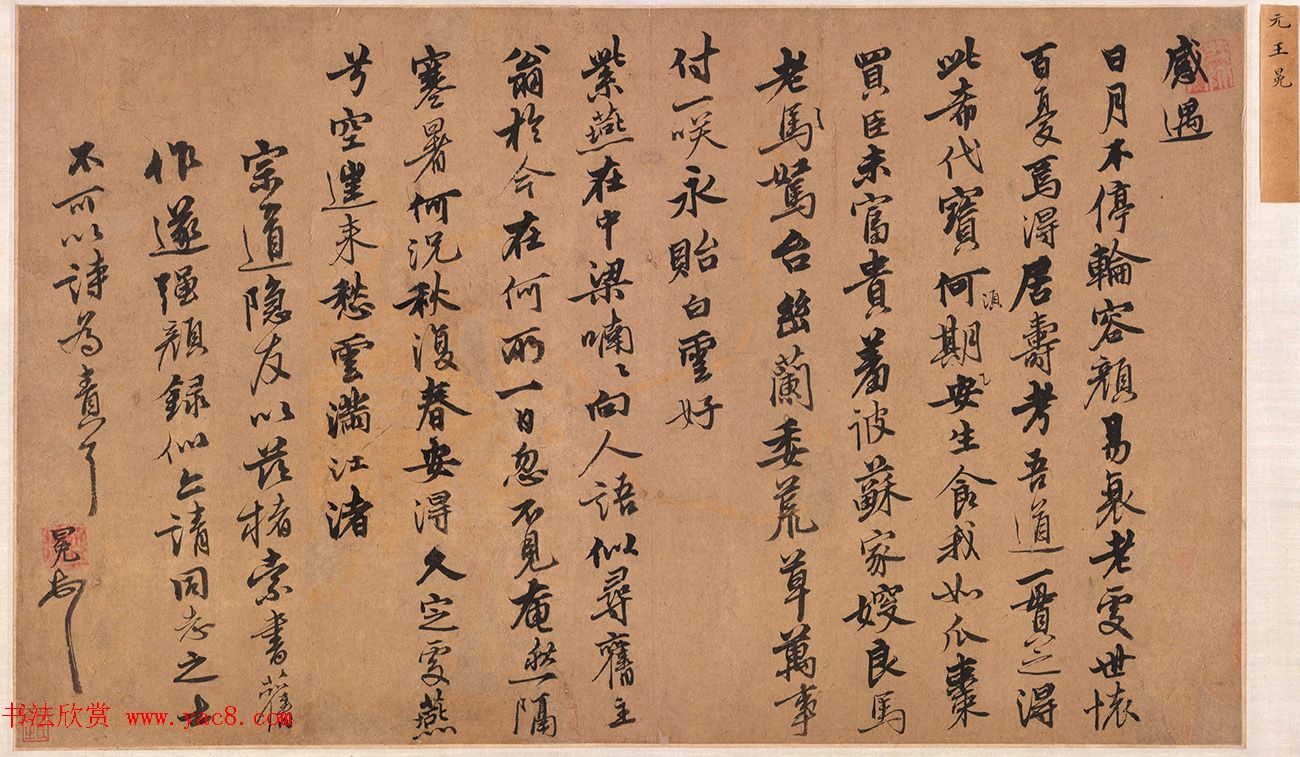 元王冕
感遇
日月不停輪容顏易衰老處世懷
百憂焉得居壽考吾道一貫之得
此希代寶何期安生食我如瓜棗
須
買臣未富貴羞彼蘇家嫂良馬
老馬駑台幽蘭委荒草萬事
付一咲永貽白雲好
紫燕在中梁喃〻向人語似尋舊主
翁於今在何所一日忽不見奄然隔
寒暑何況秋復春安得久定處燕
兮空邅來愁雲滿江渚
宗道隐友以茲楮索書舊
作遂强顏録似上請同志之士
不可以詩為責了
冕
书法欣赏 www.yac8.com